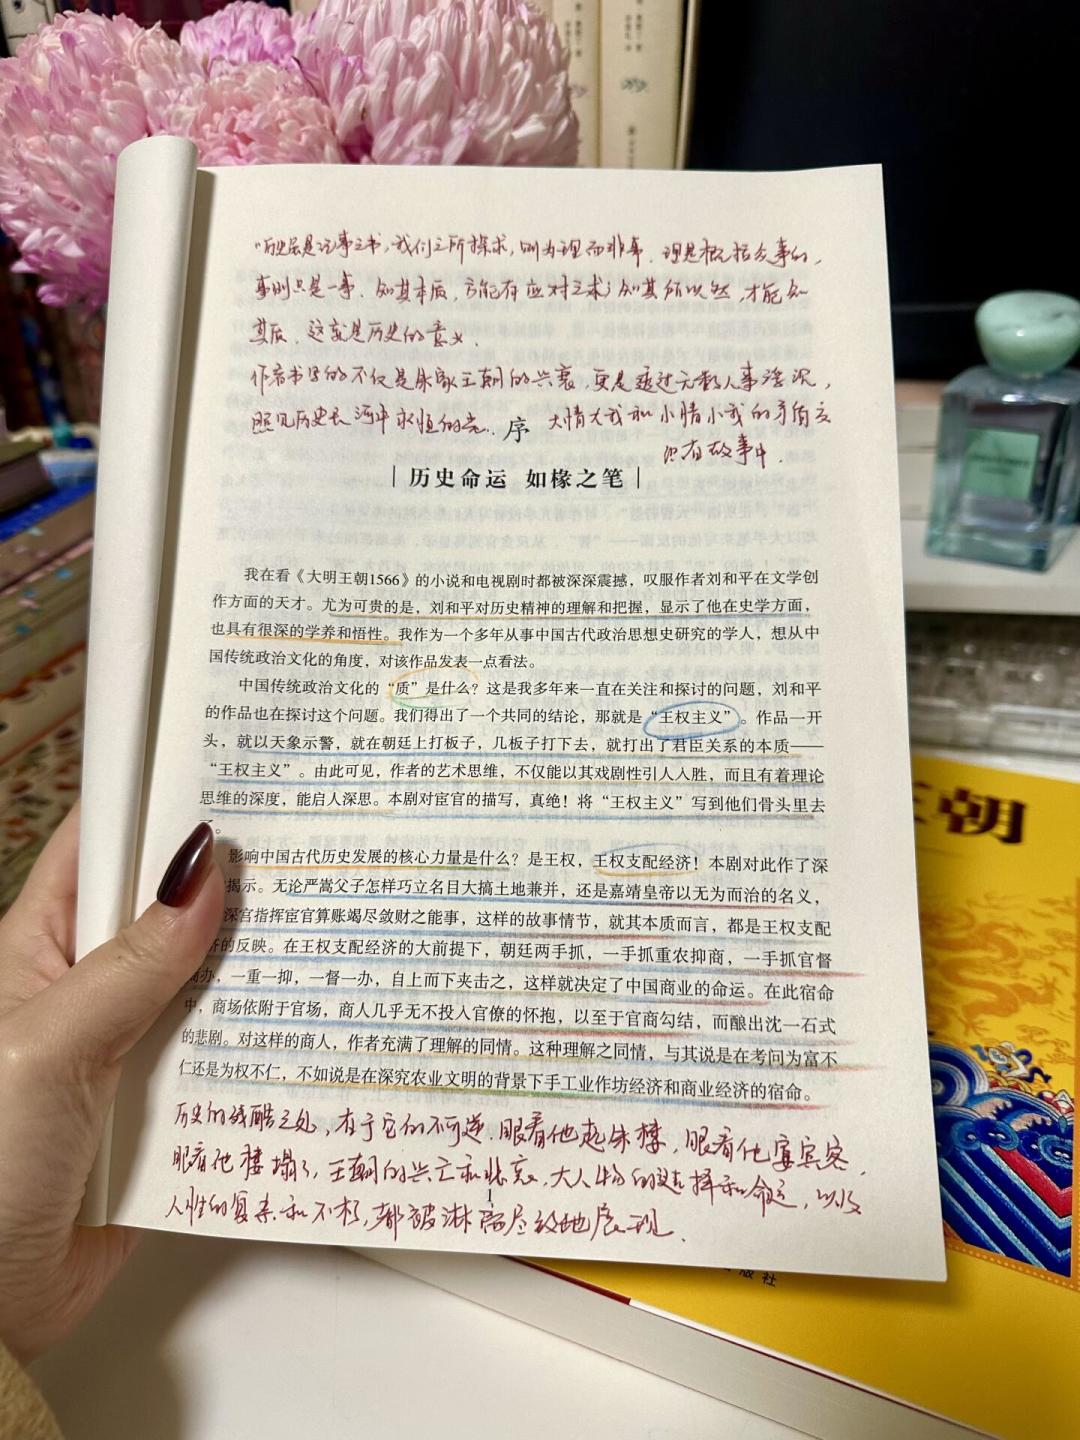 “历史虽是记事之书，我们之所探求，则为理而非事。理是概括众事的，
事则只是一事。知其本质，方能有应对之术；知其所以然，才能知
其质。这就是历史的意义。
作者书写的不仅是朱家王朝的兴衰，更是透过无数人事浮沉，
照见历史长河中永恒的光。
大情大我和小情小我的矛盾交
织在故事中．
序
历史命运 如椽之笔
我在看《大明王朝1566》的小说和电视剧时都被深深震撼，叹服作者刘和平在文学创
作方面的天才。尤为可贵的是，刘和平对历史精神的理解和把握，显示了他在史学方面，
也具有很深的学养和悟性。我作为一个多年从事中国古代政治思想史研究的学人，想从中
国传统政治文化的角度，对该作品发表一点看法。
中国传统政治文化的“质”是什么？这是我多年来一直在关注和探讨的问题，刘和平
的作品也在探讨这个问题。我们得出了一个共同的结论，那就是“王权主义”。作品一开
头，就以天象示警，就在朝廷上打板子，几板子打下去，就打出了君臣关系的本质——
“王权主义”。由此可见，作者的艺术思维，不仅能以其戏剧性引人入胜，而且有着理论
思维的深度，能启人深思。本剧对宦官的描写，真绝！将“王权主义”写到他们骨头里去
。
影响中国古代历史发展的核心力量是什么？是王权，王权支配经济！本剧对此作了深
揭示。无论严嵩父子怎样巧立名目大搞土地兼并，还是嘉靖皇帝以无为而治的名义，
深宫指挥宦官算账竭尽敛财之能事，这样的故事情节，就其本质而言，都是王权支配
济的反映。在王权支配经济的大前提下，朝廷两手抓，一手抓重农抑商，一手抓官督
商办，一重一抑，一督一办，自上而下夹击之，这样就决定了中国商业的命运。在此宿命
中，商场依附于官场，商人几乎无不投入官僚的怀抱，以至于官商勾结，而酿出沈一石式
的悲剧。对这样的商人，作者充满了理解的同情。这种理解之同情，与其说是在考问为富不
仁还是为权不仁，不如说是在深究农业文明的背景下手工业作坊经济和商业经济的宿命。
历史的残酷之处，在于它的不可逆．眼看他起朱楼，眼看他宴宾客，
眼看他楼塌了，王朝的兴亡和悲哀，大人物的选择和命运，以及
人性的复杂和不朽，都被淋漓尽致地展现．
1
王朝
版社